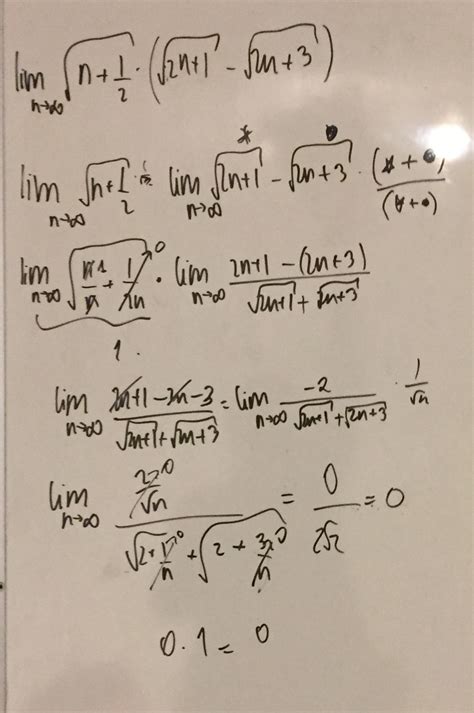 lim n→∞ √(n + 1/2) · (√(2n+1) - √(2n+3))
* •
lim n→∞ √(n + 1/2) · lim n→∞ √(2n+1) - √(2n+3) · (* + •)/(* + •)
lim n→∞ √(n/n + 1/2n) · lim n→∞ (2n+1 - (2n+3))/(√(2n+1) + √(2n+3))
1.
lim n→∞ (2n+1-2n-3)/(√(2n+1) + √(2n+3)) = lim n→∞ -2/(√(2n+1) + √(2n+3)) · 1/√n
lim n→∞ (2/√n)/(√(2 + 1/n) + √(2 + 3/n)) = 0/2√2 = 0
0 · 1 = 0